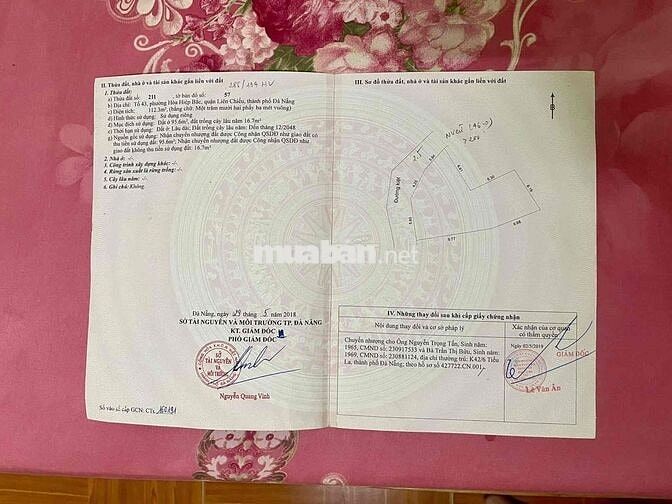 II. Thửa đất, nhà ở và tài sản khác gắn liền với đất
1. Thửa đất:
a) Thửa đất số: 211 , tờ bản đồ số: 57
b) Địa chỉ: Tổ 43, phường Hòa Hiệp Bắc, quận Liên Chiểu, thành phố Đà Nẵng
c) Diện tích: 112.3m², (bằng chữ: Một trăm mười hai phẩy ba mét vuông)
d) Hình thức sử dụng: Sử dụng riêng
đ) Mục đích sử dụng: Đất ở 95.6m²; Đất trồng cây lâu năm 16.7m²
e) Thời hạn sử dụng: Đất ở: Lâu dài; Đất trồng cây lâu năm: Đến tháng 12/2048
g) Nguồn gốc sử dụng: Nhận chuyển nhượng đất được Công nhận QSDĐ như giao đất có
thu tiền sử dụng đất: 95.6m²; Nhận chuyển nhượng đất được Công nhận QSDĐ như
giao đất không thu tiền sử dụng đất: 16.7m²
2. Nhà ở: -/-
3. Công trình xây dựng khác: -/-
4. Rừng sản xuất là rừng trồng: -/-
5. Cây lâu năm: -/-
6. Ghi chú: Không.
Đà Nẵng, ngày 29 tháng 5 năm 2018
SỞ TÀI NGUYÊN VÀ MÔI TRƯỜNG TP. ĐÀ NẴNG
KT. GIÁM ĐỐC
PHÓ GIÁM ĐỐC
SỞ
TÀI NGUYÊN
VÀ
MÔI TRƯỜNG
Nguyễn Quang Vinh
Số vào sổ cấp GCN: CTs
III. Sơ đồ thửa đất, nhà ở và tài sản khác gắn liền với đất
B
Đường kiệt
IV. Những thay đổi sau khi cấp giấy chứng nhận
Nội dung thay đổi và cơ sở pháp lý
Xác nhận của cơ quan
có thẩm quyền
Chuyển nhượng cho Ông Nguyễn Trọng Tấn, Sinh năm:
1965, CMND số: 230917533 và Bà Trần Thị Bửu, Sinh năm:
1969, CMND số: 230881124, địa chỉ thường trú: K42/6 Tiểu
La, thành phố Đà Nẵng; theo hồ sơ số 427722.CN.001.
Ngày 02/5/2019
GIÁM ĐỐC
Lê Văn Ân
muaban.net